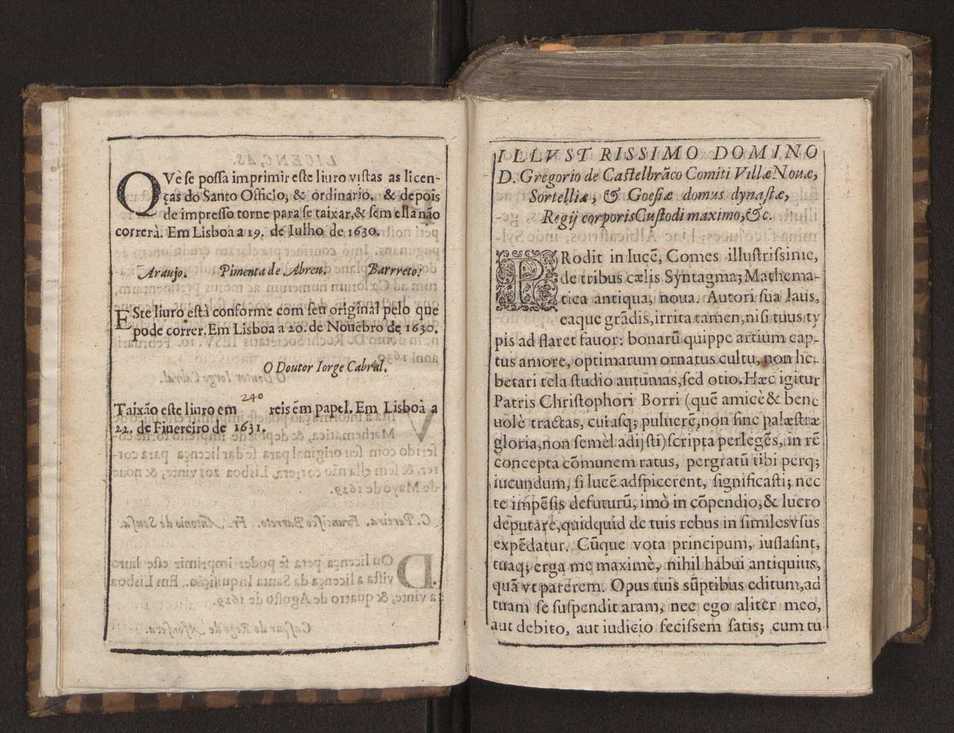 QVe se possa imprimir este liuro vistas as licen-
ças do Santo Officio, & ordinario. & depois
de impresso torne para se taixar, & sem ella não
correrà. Em Lisboa a 19. de Iulho de 1630.
Araujo. Pimenta de Abreu. Barrreto.
ESte liuro està conforme com seu original pelo que
pode correr. Em Lisboa a 20. de Nouẽbro de 1630.
O Doutor Iorge Cabral.
Taixão este liuro em 240 reis em papel. Em Lisboa a
22. de Fineeiro de 1631.
ILLVSTRISSIMO DOMINO
D. Gregorio de Castelbrãco Comiti Villæ Nouæ,
Sortelliæ, & Goesiæ domus dynastæ,
Regij corporis Custodi maximo, &c.
PRodit in lucẽ, Comes illustrissime,
de tribus cælis Syntagma; Mathema-
tica antiqua, noua. Autori sua laus,
eaque grãdis, irrita tamen, nisi tuus ty
pis ad staret fauor: bonarũ quippe artium cap-
tus amore, optimarum ornatus cultu, non he-
betari tela studio autumas, sed otio. Hæc igitur
Patris Christophori Borri (quẽ amicè & bene
uolè tractas, cui asq; puluerẽ, non sine palæstræ
gloria, non semel adijsti) scripta perlegẽs, in rẽ
concepta cõmunem ratus, pergratũ tibi perq;
iucundum, si lucẽ adspicerent, significasti; nec
te impẽsis defuturũ; imò in cõpendio, & lucro
deputare, quidquid de tuis rebus in similes vsus
expẽdatur. Cũque vota principum, iussa sint,
tuaq; erga me maximè, nihil habui antiquius,
quã vt parerem. Opus tuis sũptibus editum, ad
tuam se suspendit aram, nec ego aliter meo,
aut debito, aut iudicio fecissem satis; cum tu